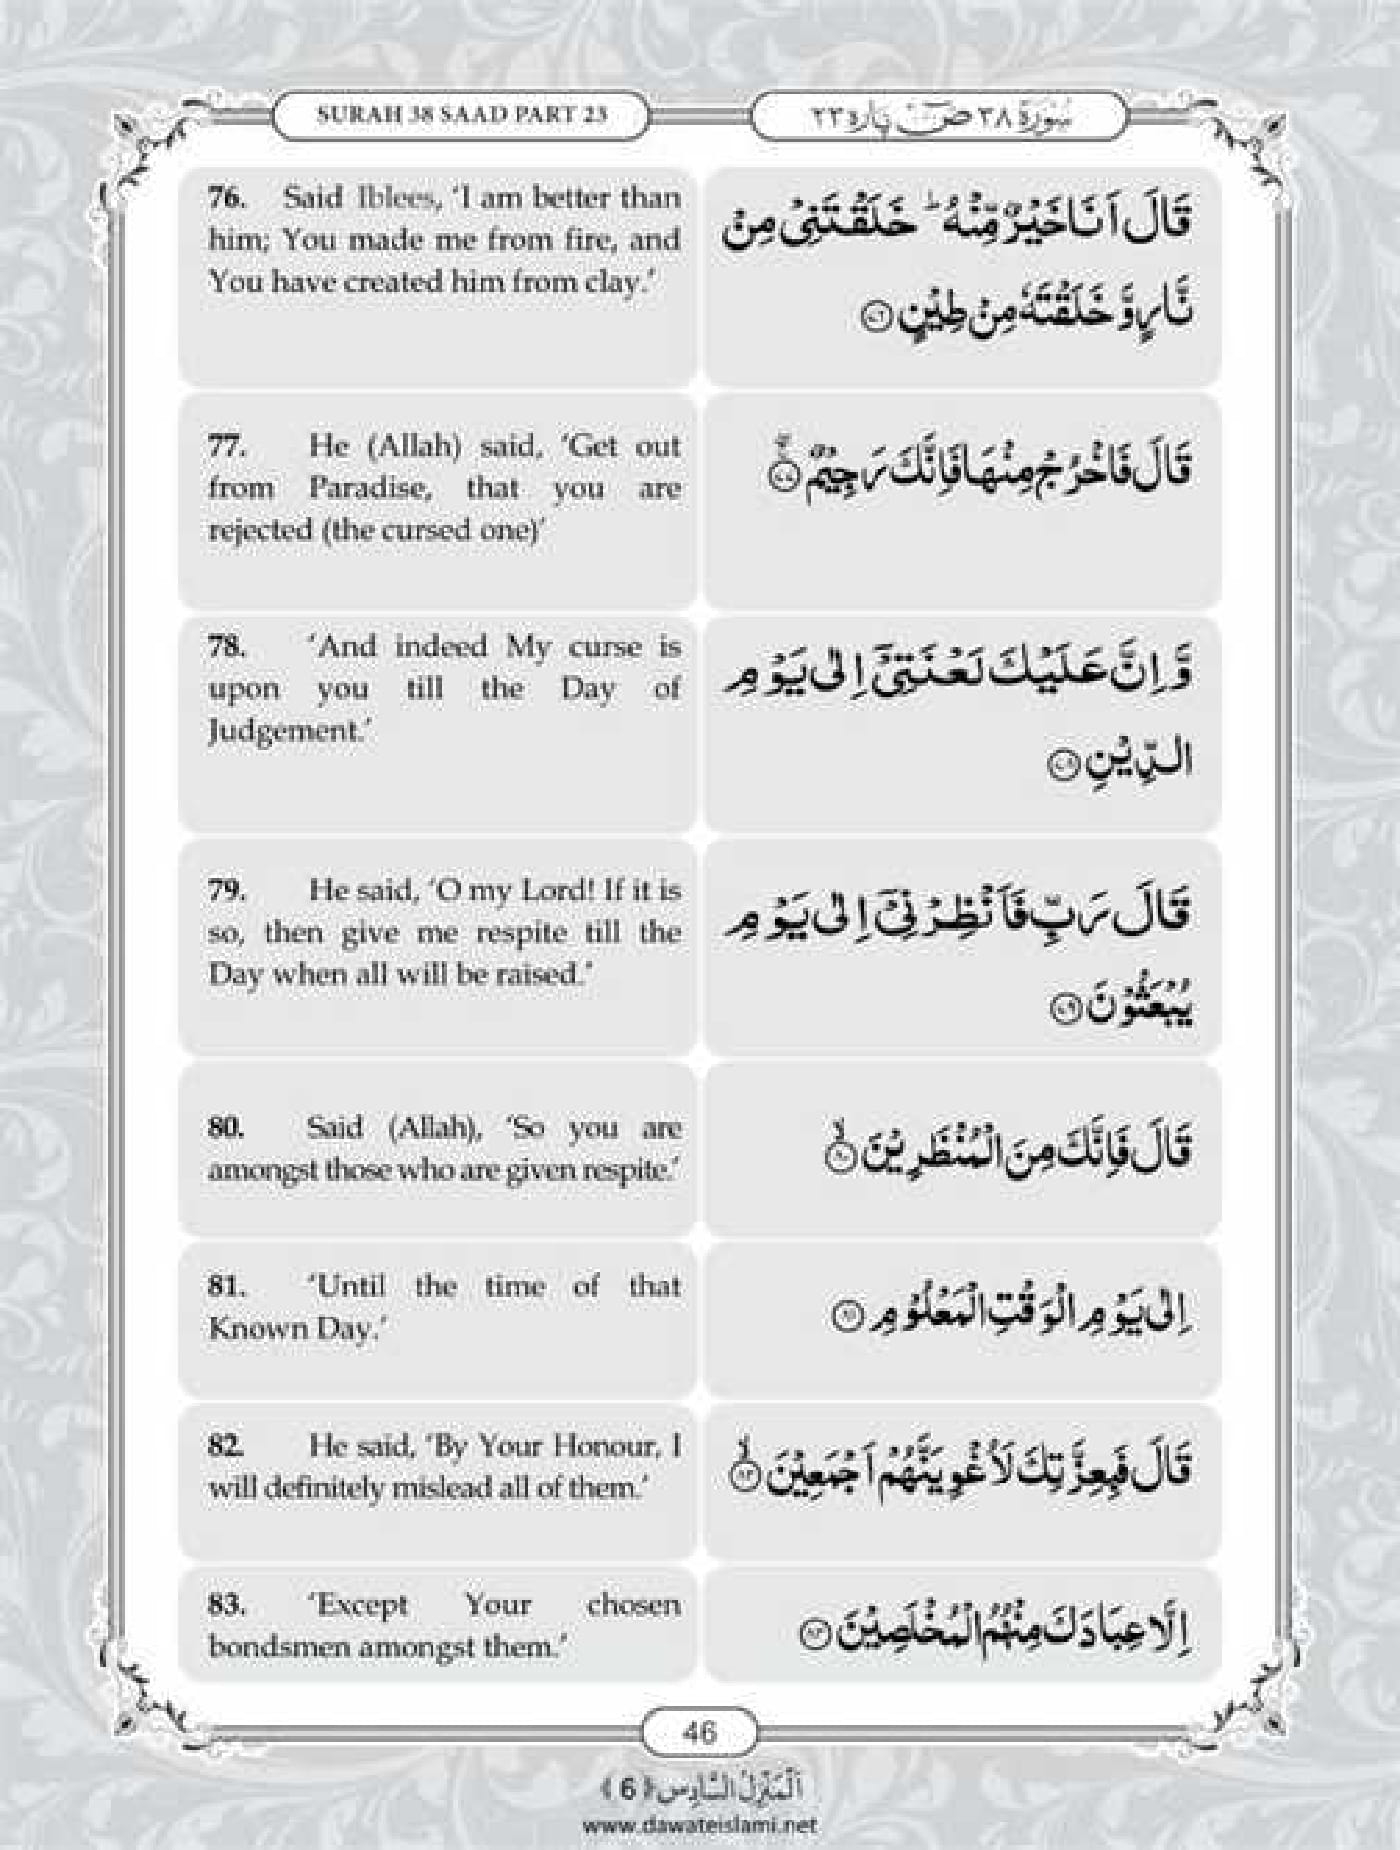 SURAH 38 SAAD PART 23
سُوْرَة ٣٨ صٓ پاره ٢٣
76. Said Iblees, ‘I am better than
him; You made me from fire, and
You have created him from clay.’
قَالَ اَنَا خَيْرٌ مِّنْهُ ؕ خَلَقْتَنِىْ مِنْ
نَّارٍ وَّ خَلَقْتَهٗ مِنْ طِيْنٍ ﴿٧٦﴾
77. He (Allah) said, ‘Get out
from Paradise, that you are
rejected (the cursed one)’
قَالَ فَاخْرُجْ مِنْهَا فَاِنَّكَ رَجِيْمٌ ﴿٧٧﴾
78. ‘And indeed My curse is
upon you till the Day of
Judgement.’
وَّ اِنَّ عَلَيْكَ لَعْنَتِىْۤ اِلٰى يَوْمِ
الدِّيْنِ ﴿٧٨﴾
79. He said, ‘O my Lord! If it is
so, then give me respite till the
Day when all will be raised.’
قَالَ رَبِّ فَاَنْظِرْنِىْۤ اِلٰى يَوْمِ
يُبْعَثُوْنَ ﴿٧٩﴾
80. Said (Allah), ‘So you are
amongst those who are given respite.’
قَالَ فَاِنَّكَ مِنَ الْمُنْظَرِيْنَ ﴿٨٠﴾
81. ‘Until the time of that
Known Day.’
اِلٰى يَوْمِ الْوَقْتِ الْمَعْلُوْمِ ﴿٨١﴾
82. He said, ‘By Your Honour, I
will definitely mislead all of them.’
قَالَ فَبِعِزَّتِكَ لَاُغْوِيَنَّهُمْ اَجْمَعِيْنَ ﴿٨٢﴾
83. ‘Except Your chosen
bondsmen amongst them.’
اِلَّا عِبَادَكَ مِنْهُمُ الْمُخْلَصِيْنَ ﴿٨٣﴾
46
اَلْمَنْزِلُ السَّادِس ﴿6﴾
www.dawateislami.net